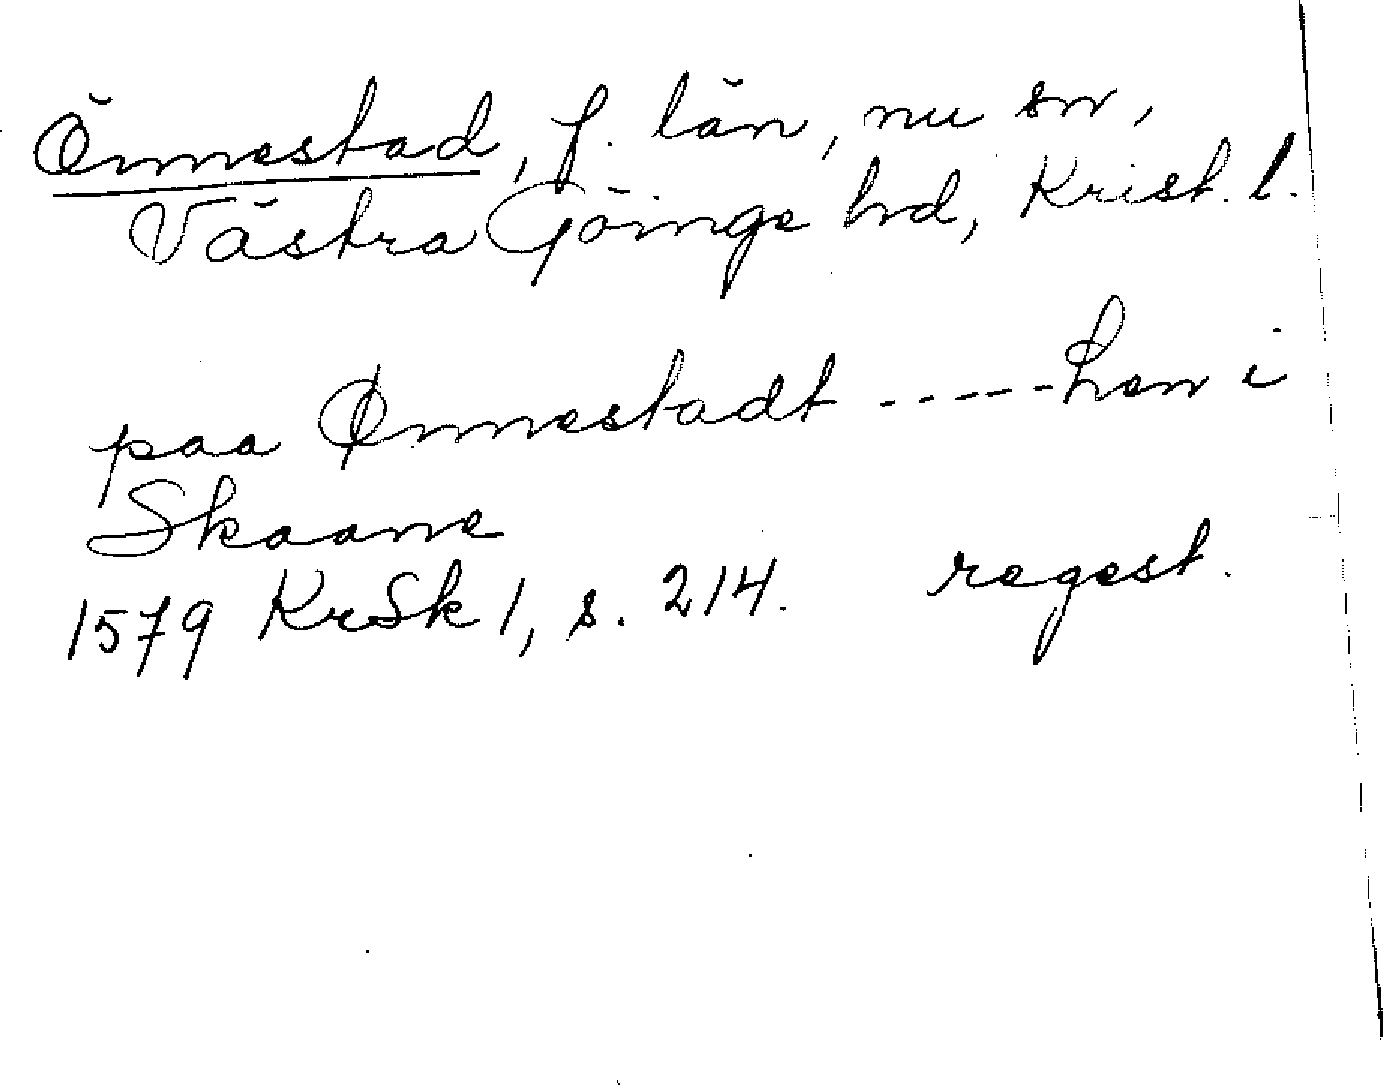 Önnestad, f. län, nu sn,
Västra Göinge hd, Krist. l.
paa Ønnestadt ----- Len i
Skaane
1579 KrSk 1, s. 214. regest.